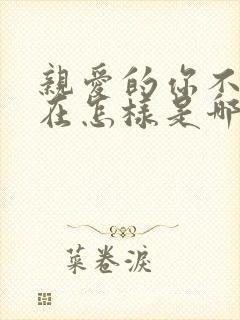 親愛的你不
在怎樣是哪
菜卷淚